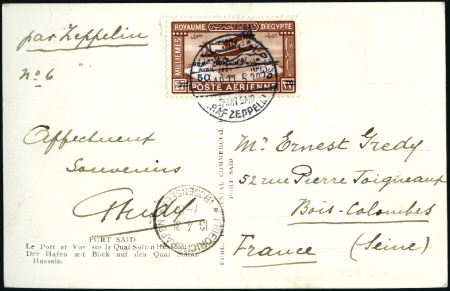 par Zeppelin
No 6
MILLIEMES
ROYAUME D'EGYPTE
POSTE AERIENNE
50
PORT SAID
GRAF ZEPPELIN
Affectueux
Souvenirs
PORT SAID
Le Port et Vue sur le Quai Sultan Hussein
Der Hafen mit Blick auf den Quai Sultan
Hussein.
FRIEDRICHSHAFEN
(BODENSEE)
PORT SAID
Mr Ernest Gredy
52 rue Pierre Joigneaux
Bois-Colombes
France (Seine)